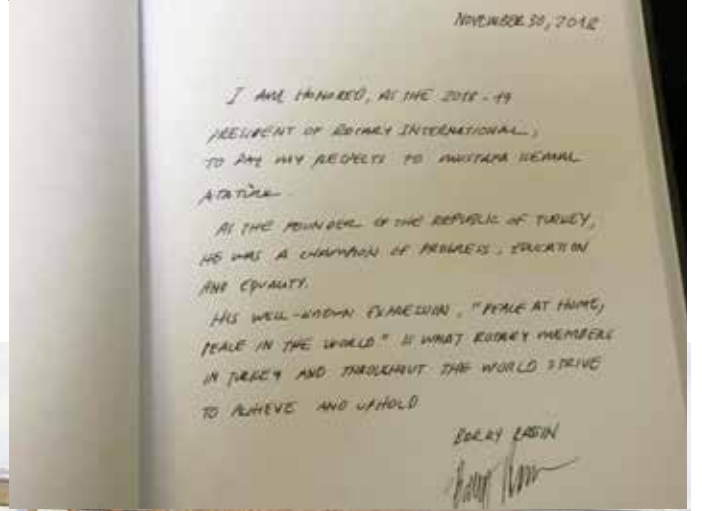 NOVEMBER 30, 2018
I AM HONORED, AS THE 2018-19
PRESIDENT OF ROTARY INTERNATIONAL,
TO PAY MY RESPECTS TO MUSTAFA KEMAL
ATATÜRK.
AS THE FOUNDER OF THE REPUBLIC OF TURKEY,
HE WAS A CHAMPION OF PROGRESS, EDUCATION
AND EQUALITY.
HIS WELL-KNOWN EXPRESSION, "PEACE AT HOME,
PEACE IN THE WORLD" IS WHAT ROTARY MEMBERS
IN TURKEY AND THROUGHOUT THE WORLD STRIVE
TO ACHIEVE AND UPHOLD
BARRY RASSIN